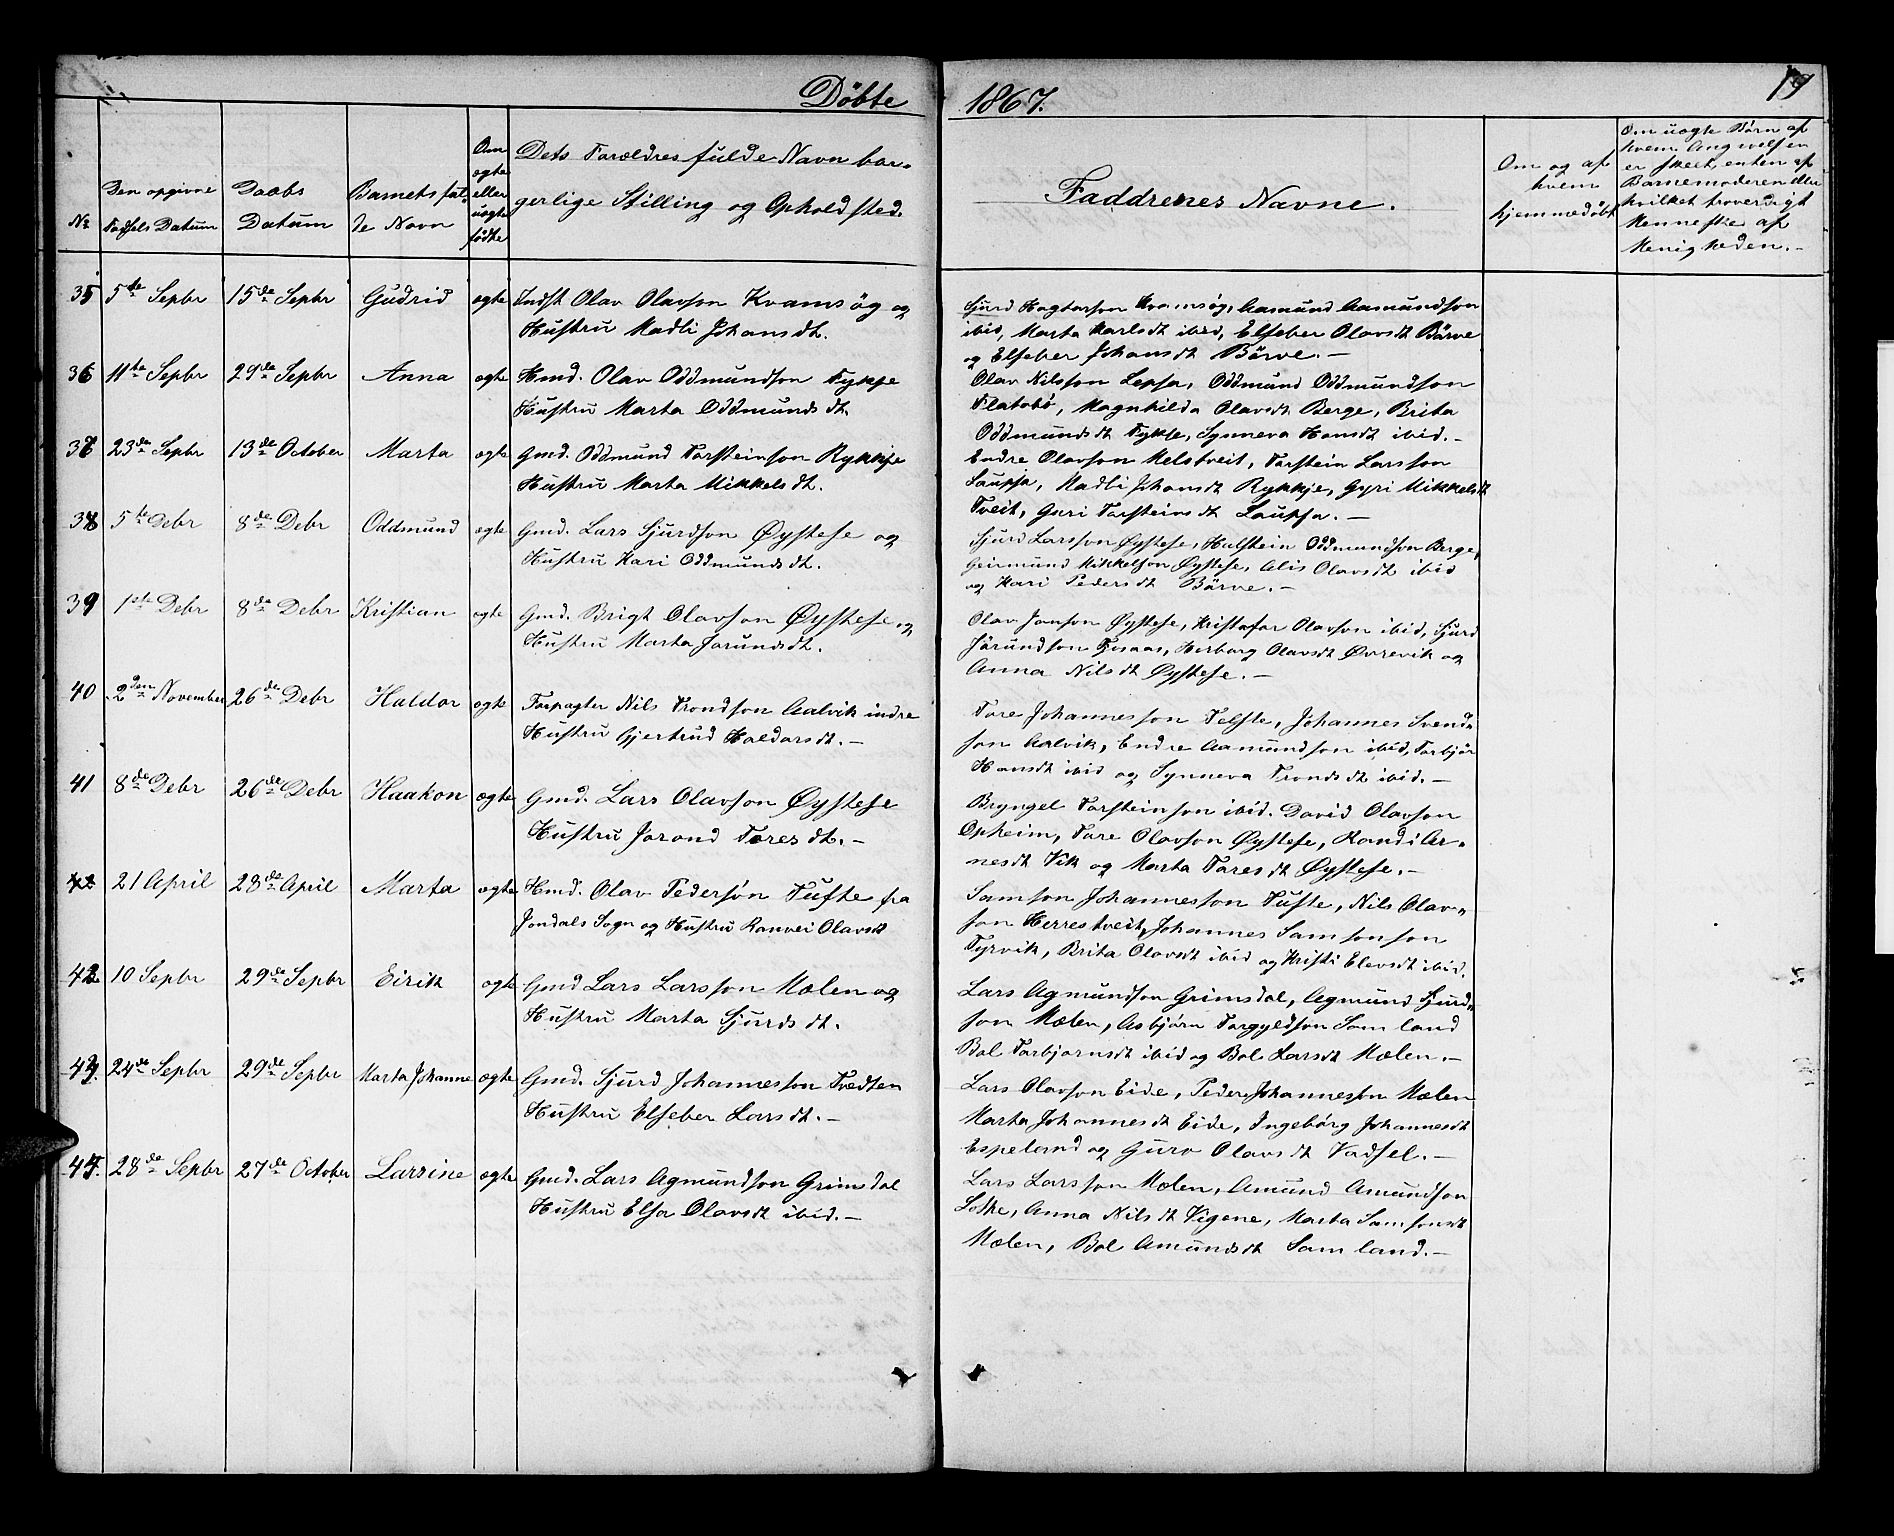 Döbte
1867.
19
No
Den opgivne
Fødsels Datum
Daabs
Datum
Barnets ful-
de Navn
Om
ægte
eller
uægte
fødte
Dets Forældres fulde Navn bor-
gerlige Stilling og Opholdsted.
Faddrenes Navne.
Om og af
hvem
hjemmedøbt
Om uægte Børn af
hvem Angivelsen
er skeet, enten af
Barnemoderen eller
hvilket troverdigt
Menneske af
Menigheden.-
35 5te Sepbr 15de Sepbr Gudrid ægte Indst Olav Olavson Kvamsøg og
Hustru Madli Johansdt.
Sjurd Hagtorson Kvamsøg, Aamund Aamundson
ibid, Marta Karlsdt ibid, Elseber Olavsdt Börve
og Elseber Johansdt Börve.-
36 11te Sepbr 29de Sepbr Anna ægte Hmd. Olav Oddmundson Fykse
Hustru Marta Oddmundsdt.
Olav Nilsson Lepsa, Oddmund Oddmundson
Flatebø, Magnhilda Olavsdt Berge, Brita
Oddmundsdt Fykse, Synneva Hansdt ibid.-
37 23de Sepbr 13de October Marta ægte Gmd. Oddmund Torsteinson Rykkje
Hustru Marta Mikkelsdt.
Endre Olavson Melstveit, Torstein Larsson
Laupsa, Madli Johansdt Rykkje, Gyri Mikkelsdt
Tveit, Guri Torsteinsdt Laupsa.-
38 5te Debr 8de Debr Oddmund ægte Gmd. Lars Sjurdson Øystese og
Hustru Kari Oddmundsdt.
Sjurd Larsson Øystese, Halstein Oddmundson Berge,
Geirmund Mikkelson Øystese, Alis Olavsdt ibid
og Kari Pedersdt Börve.-
39 1ste Debr 8de Debr Kristian ægte Gmd. Brigt Olavson Øystese og
Hustru Marta Jorundsdt.
Olav Jonson Øystese, Kristofer Olavson ibid, Sjurd
Jörundson Fosaas, Herborg Olavsdt Øvrevik og
Anna Nilsdt Øystese.-
40 2den November 26de Debr Haldor ægte Forpagter Nils Trondson Aalvik indre
Hustru Gjertrud Haldorsdt.-
Tore Johannesson Felste, Johannes Svend-
son Aalvik, Endre Aamundson ibid, Torbjør
Hansdt ibid og Synneva Trondsdt ibid.-
41 8de Debr 26de Debr Haakon ægte Gmd. Lars Olavson Øystese
Hustru Jorond Toresdt.-
Bryngel Torsteinson ibid. David Olavson
Opheim, Tore Olavson Øystese, Randi Ar-
nesdt Vik og Marta Toresdt Øystese.-
42 21 April 28de April Marta ægte Hmd. Olav Pederson Tufte fra
Jondals Sogn og Hustru Ranvei Olavsdt
Samson Johannesson Tufte, Nils Olav-
son Herrestveit, Johannes Samsonson
Tyrvik, Brita Olavsdt ibid og Kristi Elevsdt ibid.
42 10 Sepbr 29de Sepbr Eirik ægte Gmd Lars Larsson Mælen og
Hustru Marta Sjurdsdt.
Lars Agmundson Grimsdal, Agmund Sjurd-
son Mælen, Asbjørn Torgyldson Samland
Bol Torbjornsdt ibid og Bol Larsdt Mælen.-
43. 24de Sepbr 29de Sepbr Marta Johanne ægte Gmd. Sjurd Johannesson Tvedten
Hustru Elseber Larsdt.-
Lars Olavson Eide, Peder Johannesson Mælen
Marta Johannesdt Eide, Ingebörg Johannesdt
Espeland og Guro Olavsdt Vadsel.-
44. 28de Sepbr 27de October Larsine ægte Gmd. Lars Agmundson Grimsdal
Hustru Elsa Olavsdt ibid.-
Lars Larsson Mælen, Amund Amundson
Lothe, Anna Nilsdt Vigene, Marta Samsonsdt
Mælen, Bol Amundsdt Samland.-